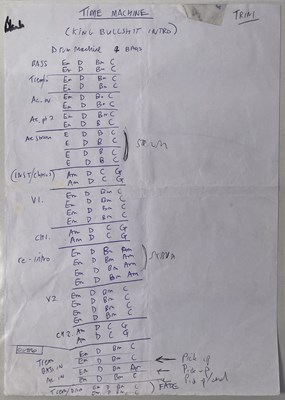 TIME MACHINE
TRINI
(KING BULLSHIT INTRO)
Drum Machine & BASS
BASS Em D Bm C
Em D Bm C
Em D Bm C
Em D Bm C
Ac. IN Em D Bm C
Em D Bm C
Ac. pt 2 Em D Bm C
Em D B C
Ac strum E D B C
E D B C
E D B C
E D B C
(INST/Chorus) Am D C G
Am D C G
V1. Em D Bm C
Em D Bm C
Em D Bm C
Em D Bm C
CH1. Am D C G
Am D C G
re-intro Em D Bm Am
Em D Bm Am
Em D Bm Am
Em D Bm Am
STRUM
V2 Em D Bm C
Em D Bm C
Em D Bm C
Em D Bm C
CH2. Am D C G
Am D C G
Em D Bm C
Em D Bm C Pick up
BASS IN Em D Bm Pick up
Ac IN Em D Bm C
Em D Bm C
Em D Bm C FADE